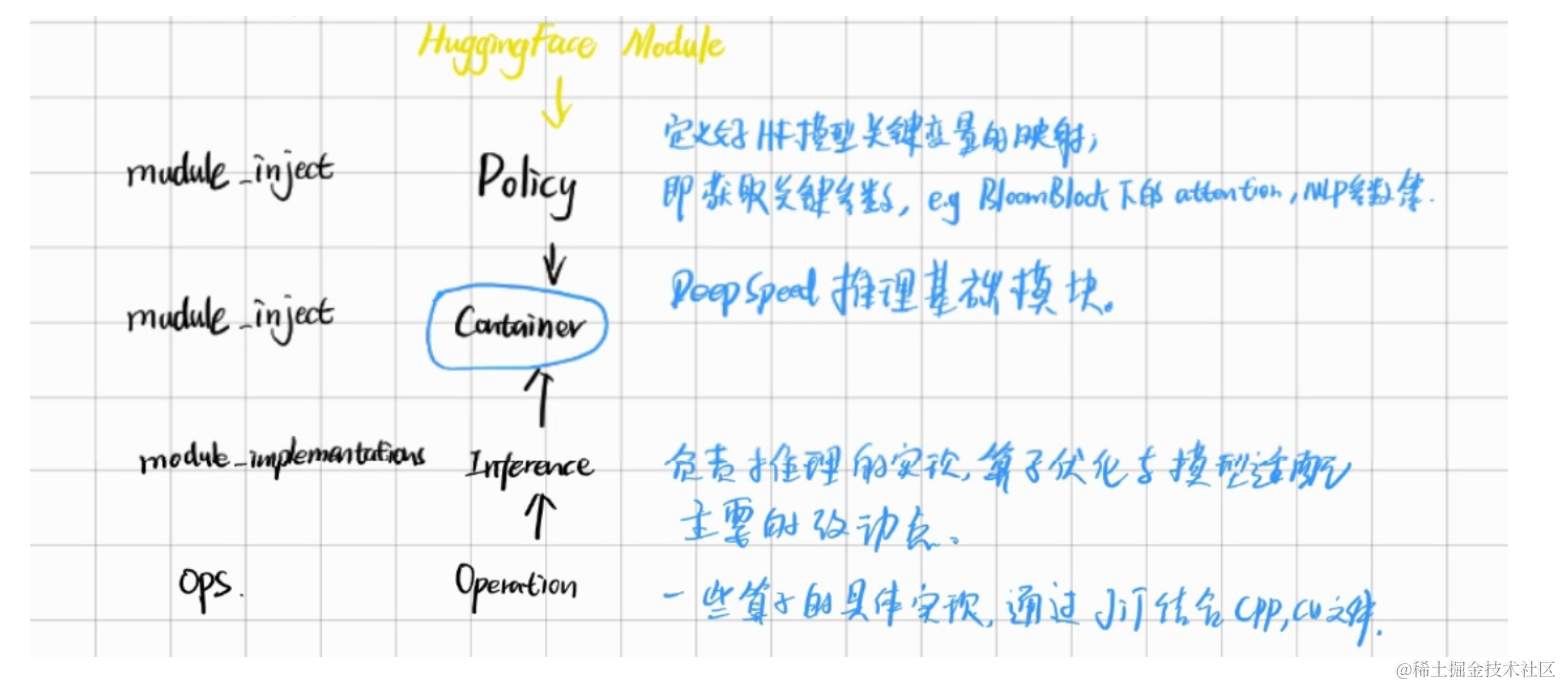 HuggingFace Module
mudule_inject
Policy
定义好HF模型关键变量的映射;
即获取关键参数, e.g BloomBlock下的 attention, MLP参数集.
mudule_inject
Container
DeepSpeed推理基础模块。
module_implementations
Inference
负责推理的实现,算子优化与模型适配
主要的改动点。
Ops.
Operation
一些算子的具体实现,通过JiT结合CPP,CU文件.
@稀土掘金技术社区